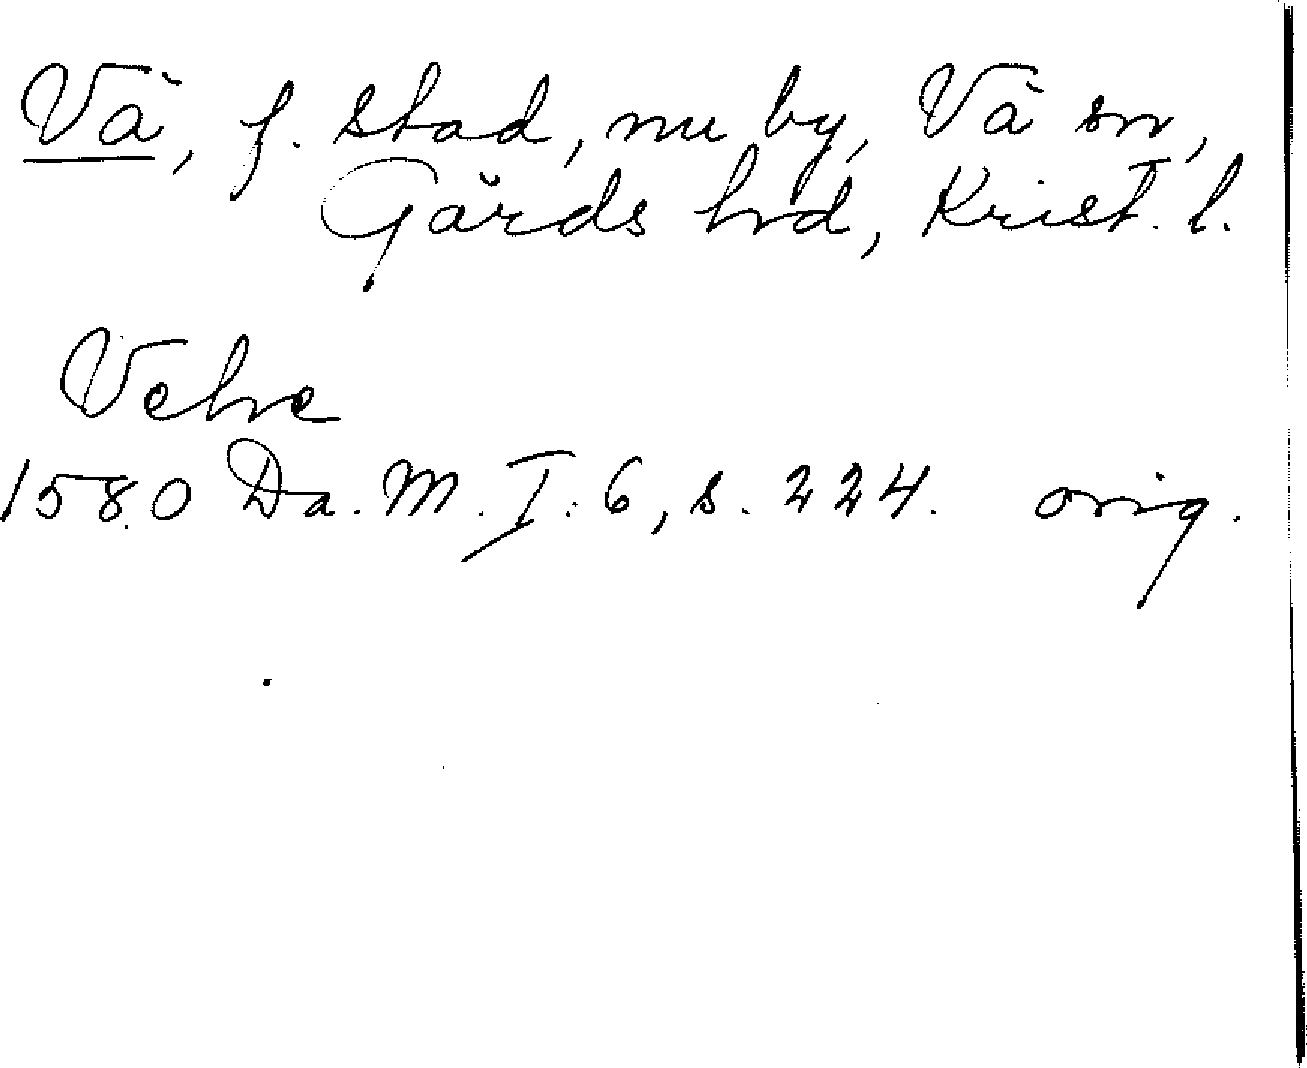 Vä, f. stad, nu by, Vä sn,
Gärds hrd, Krist. l.
Vehe
1580 Da. M. I: 6, s. 224. orig.